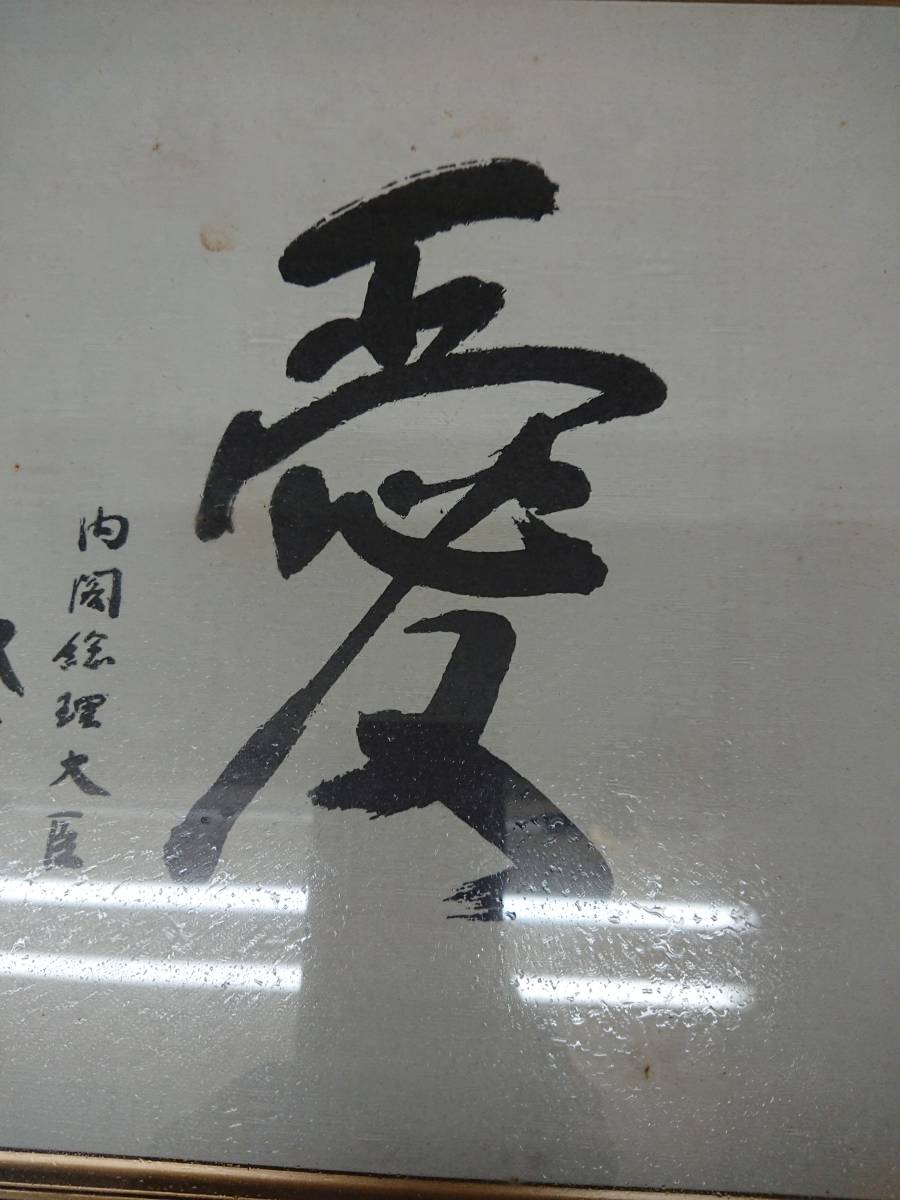 愛
内閣総理大臣